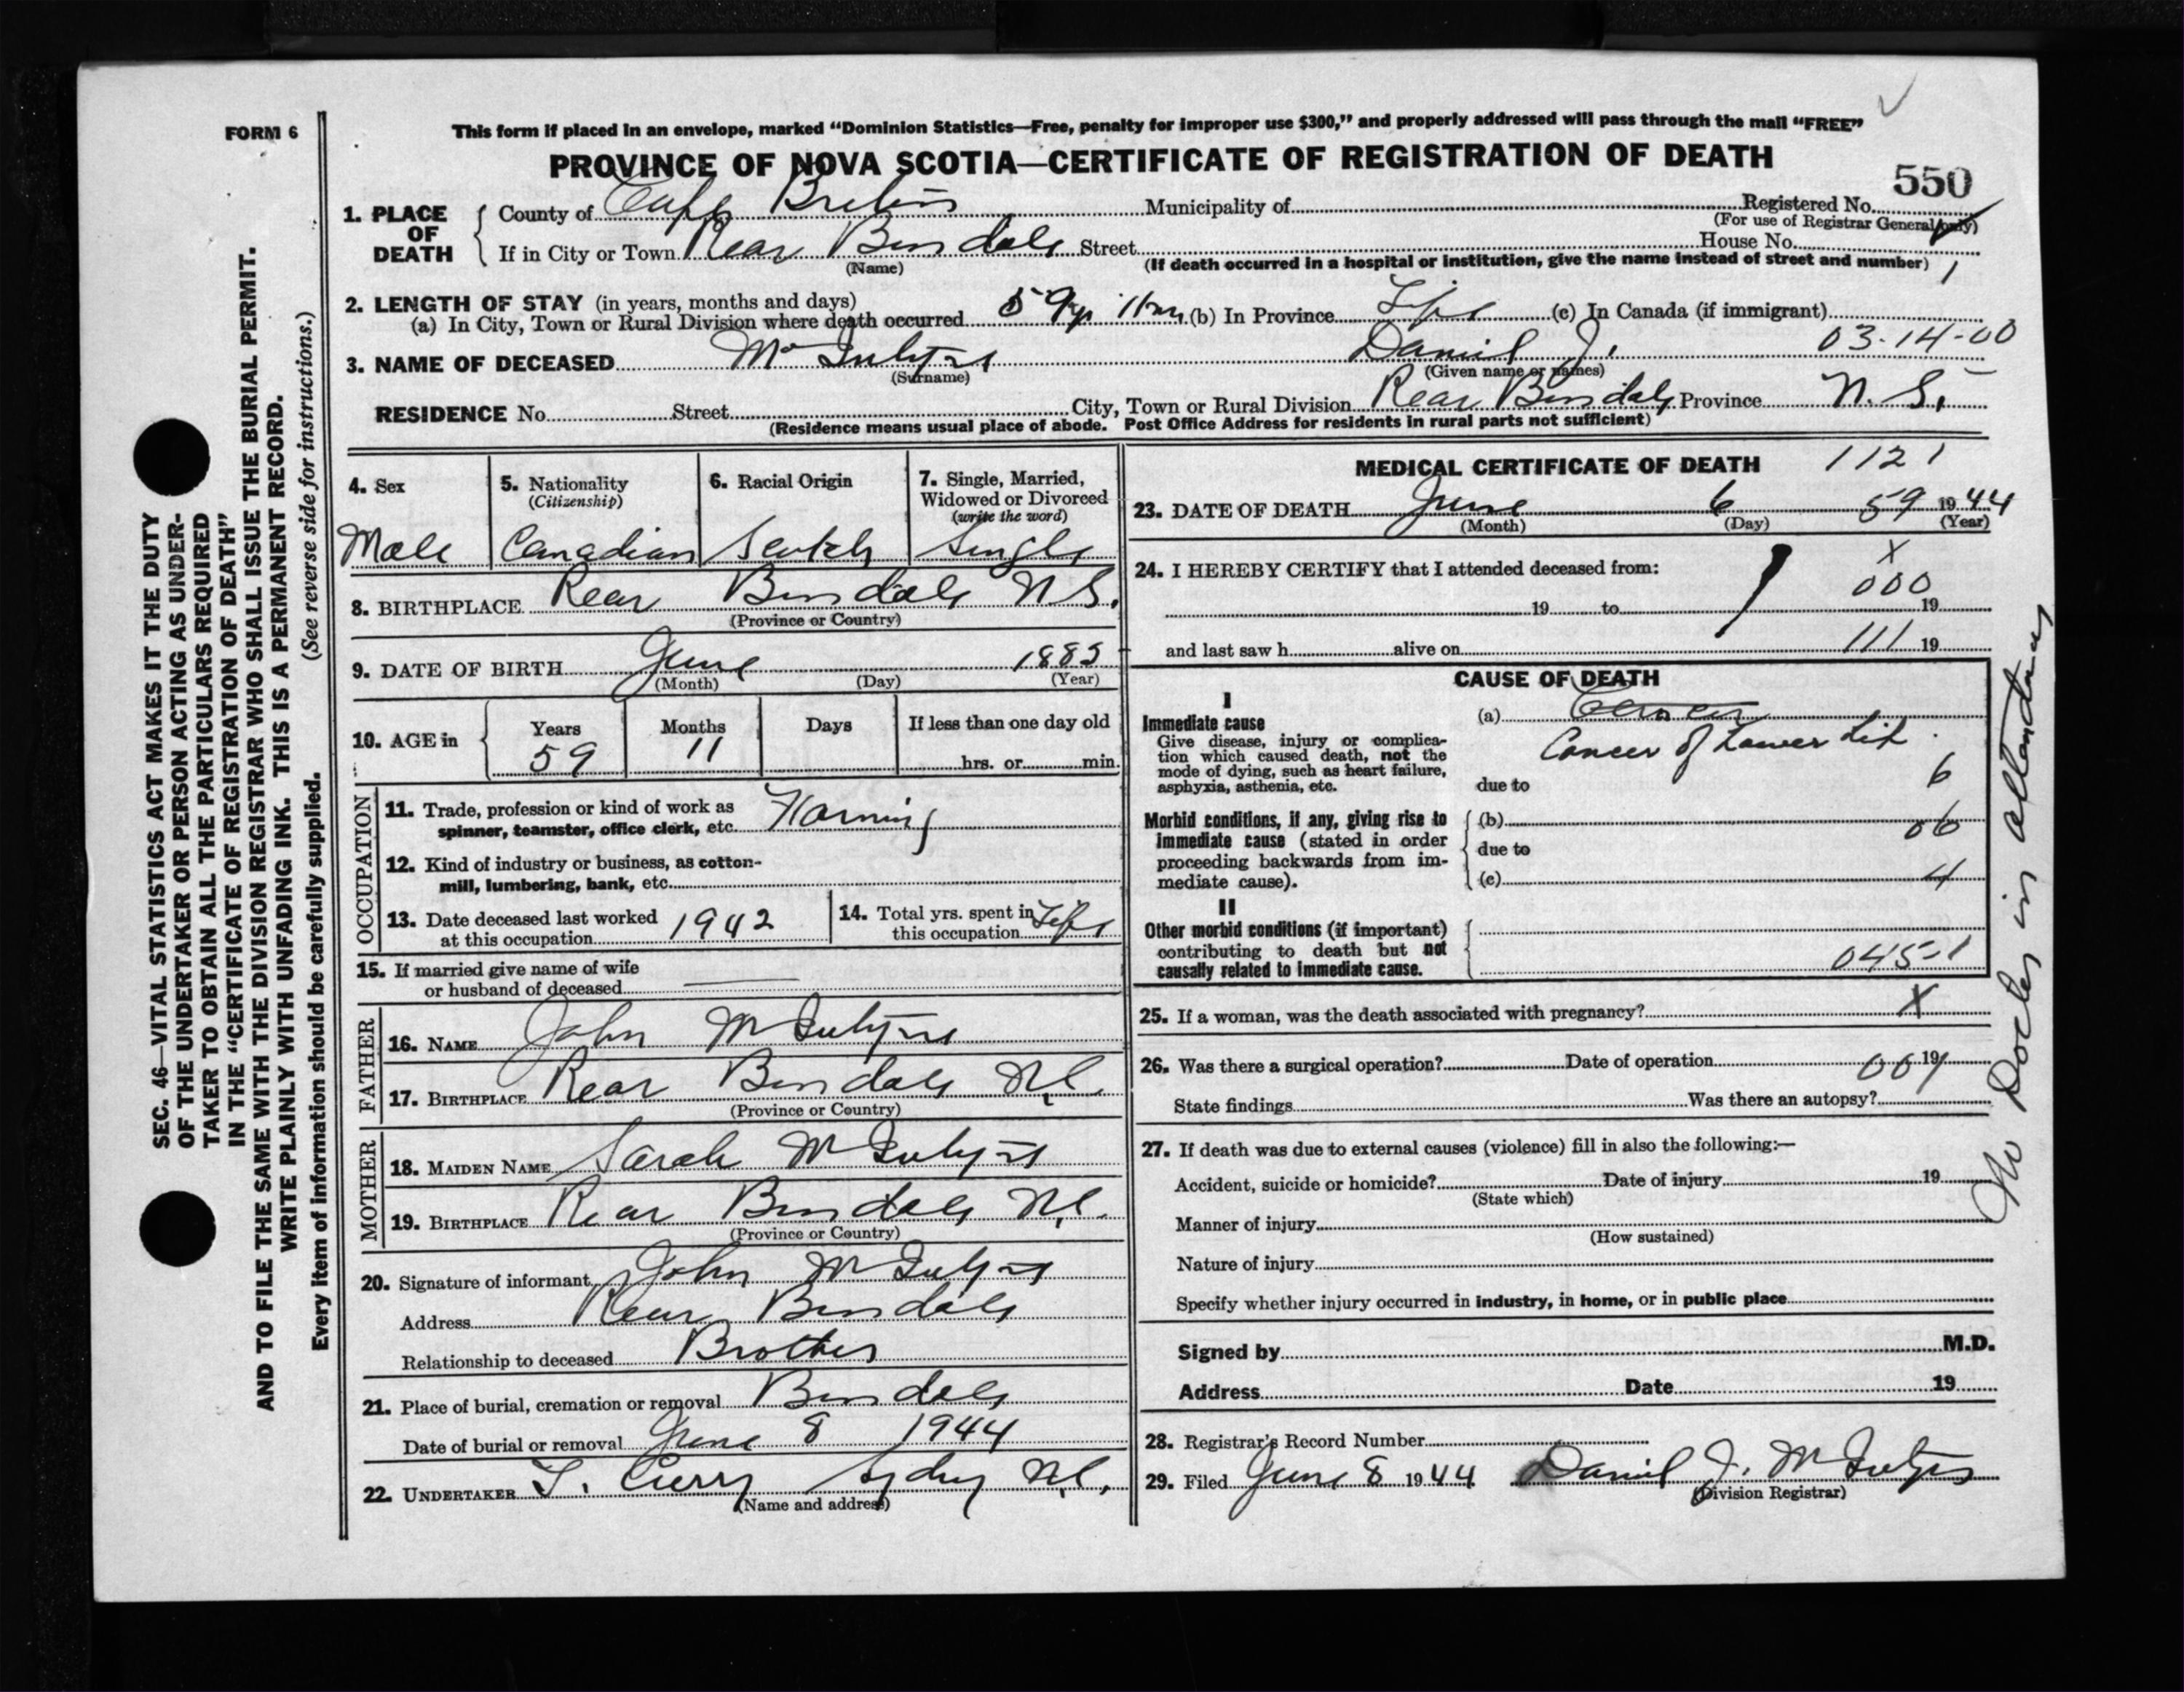 FORM 6
This form if placed in an envelope, marked “Dominion Statistics—Free, penalty for improper use $300,” and properly addressed will pass through the mail “FREE”
PROVINCE OF NOVA SCOTIA—CERTIFICATE OF REGISTRATION OF DEATH
550
1. PLACE OF DEATH
County of Cape Breton Municipality of Registered No.
(For use of Registrar General only)
If in City or Town Rear Boisdale Street House No.
(Name) (If death occurred in a hospital or institution, give the name instead of street and number) 1
2. LENGTH OF STAY (in years, months and days)
(a) In City, Town or Rural Division where death occurred 59 yr 11 m (b) In Province Life (c) In Canada (if immigrant)
03-14-00
3. NAME OF DECEASED McIntyre Daniel J.
(Surname) (Given name or names)
RESIDENCE No. Street City, Town or Rural Division Rear Boisdale Province N.S.
(Residence means usual place of abode. Post Office Address for residents in rural parts not sufficient)
4. Sex
Male
5. Nationality
(Citizenship)
Canadian
6. Racial Origin
Scotch
7. Single, Married,
Widowed or Divorced
(write the word)
Single
8. BIRTHPLACE Rear Boisdale N.S.
(Province or Country)
9. DATE OF BIRTH June 1885
(Month) (Day) (Year)
10. AGE in
Years Months Days If less than one day old
59 11 hrs. or min.
OCCUPATION
11. Trade, profession or kind of work as
spinner, teamster, office clerk, etc. Farming
12. Kind of industry or business, as cotton-
mill, lumbering, bank, etc.
13. Date deceased last worked
at this occupation 1942
14. Total yrs. spent in
this occupation Life
15. If married give name of wife
or husband of deceased
FATHER
16. NAME John McIntyre
17. BIRTHPLACE Rear Boisdale N.S.
(Province or Country)
MOTHER
18. MAIDEN NAME Sarah McIntyre
19. BIRTHPLACE Rear Boisdale N.S.
(Province or Country)
20. Signature of informant John McIntyre
Address Rear Boisdale
Relationship to deceased Brother
21. Place of burial, cremation or removal Boisdale
Date of burial or removal June 8 1944
22. UNDERTAKER T. Curry Sydney N.S.
(Name and address)
MEDICAL CERTIFICATE OF DEATH 1121
23. DATE OF DEATH June 6 59 1944
(Month) (Day) (Year)
24. I HEREBY CERTIFY that I attended deceased from: X
000
19 to 19
and last saw h alive on 111 19
CAUSE OF DEATH
I
Immediate cause
Give disease, injury or complica-
tion which caused death, not the
mode of dying, such as heart failure,
asphyxia, asthenia, etc.
(a) Cancer
Cancer of Lower Lip.
due to 6
Morbid conditions, if any, giving rise to
immediate cause (stated in order
proceeding backwards from im-
mediate cause).
(b) 06
due to
(c) 4
II
Other morbid conditions (if important)
contributing to death but not
causally related to immediate cause.
045-1
25. If a woman, was the death associated with pregnancy? X
26. Was there a surgical operation? Date of operation 19
State findings Was there an autopsy?
27. If death was due to external causes (violence) fill in also the following:—
Accident, suicide or homicide? Date of injury 19
(State which)
Manner of injury
(How sustained)
Nature of injury
Specify whether injury occurred in industry, in home, or in public place
Signed by M.D.
Address Date 19
28. Registrar's Record Number
29. Filed June 8 1944 Daniel J. McIntyre
(Division Registrar)
No Doctor in attendance
SEC. 46—VITAL STATISTICS ACT MAKES IT THE DUTY
OF THE UNDERTAKER OR PERSON ACTING AS UNDER-
TAKER TO OBTAIN ALL THE PARTICULARS REQUIRED
IN THE “CERTIFICATE OF REGISTRATION OF DEATH”
AND TO FILE THE SAME WITH THE DIVISION REGISTRAR WHO SHALL ISSUE THE BURIAL PERMIT.
WRITE PLAINLY WITH UNFADING INK. THIS IS A PERMANENT RECORD.
Every item of information should be carefully supplied. (See reverse side for instructions.)